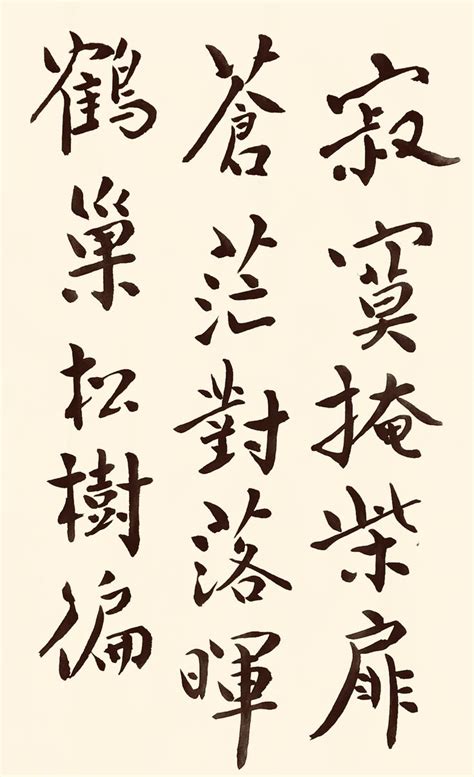 寂寞掩柴扉
蒼茫對落暉
鶴巢松樹徧